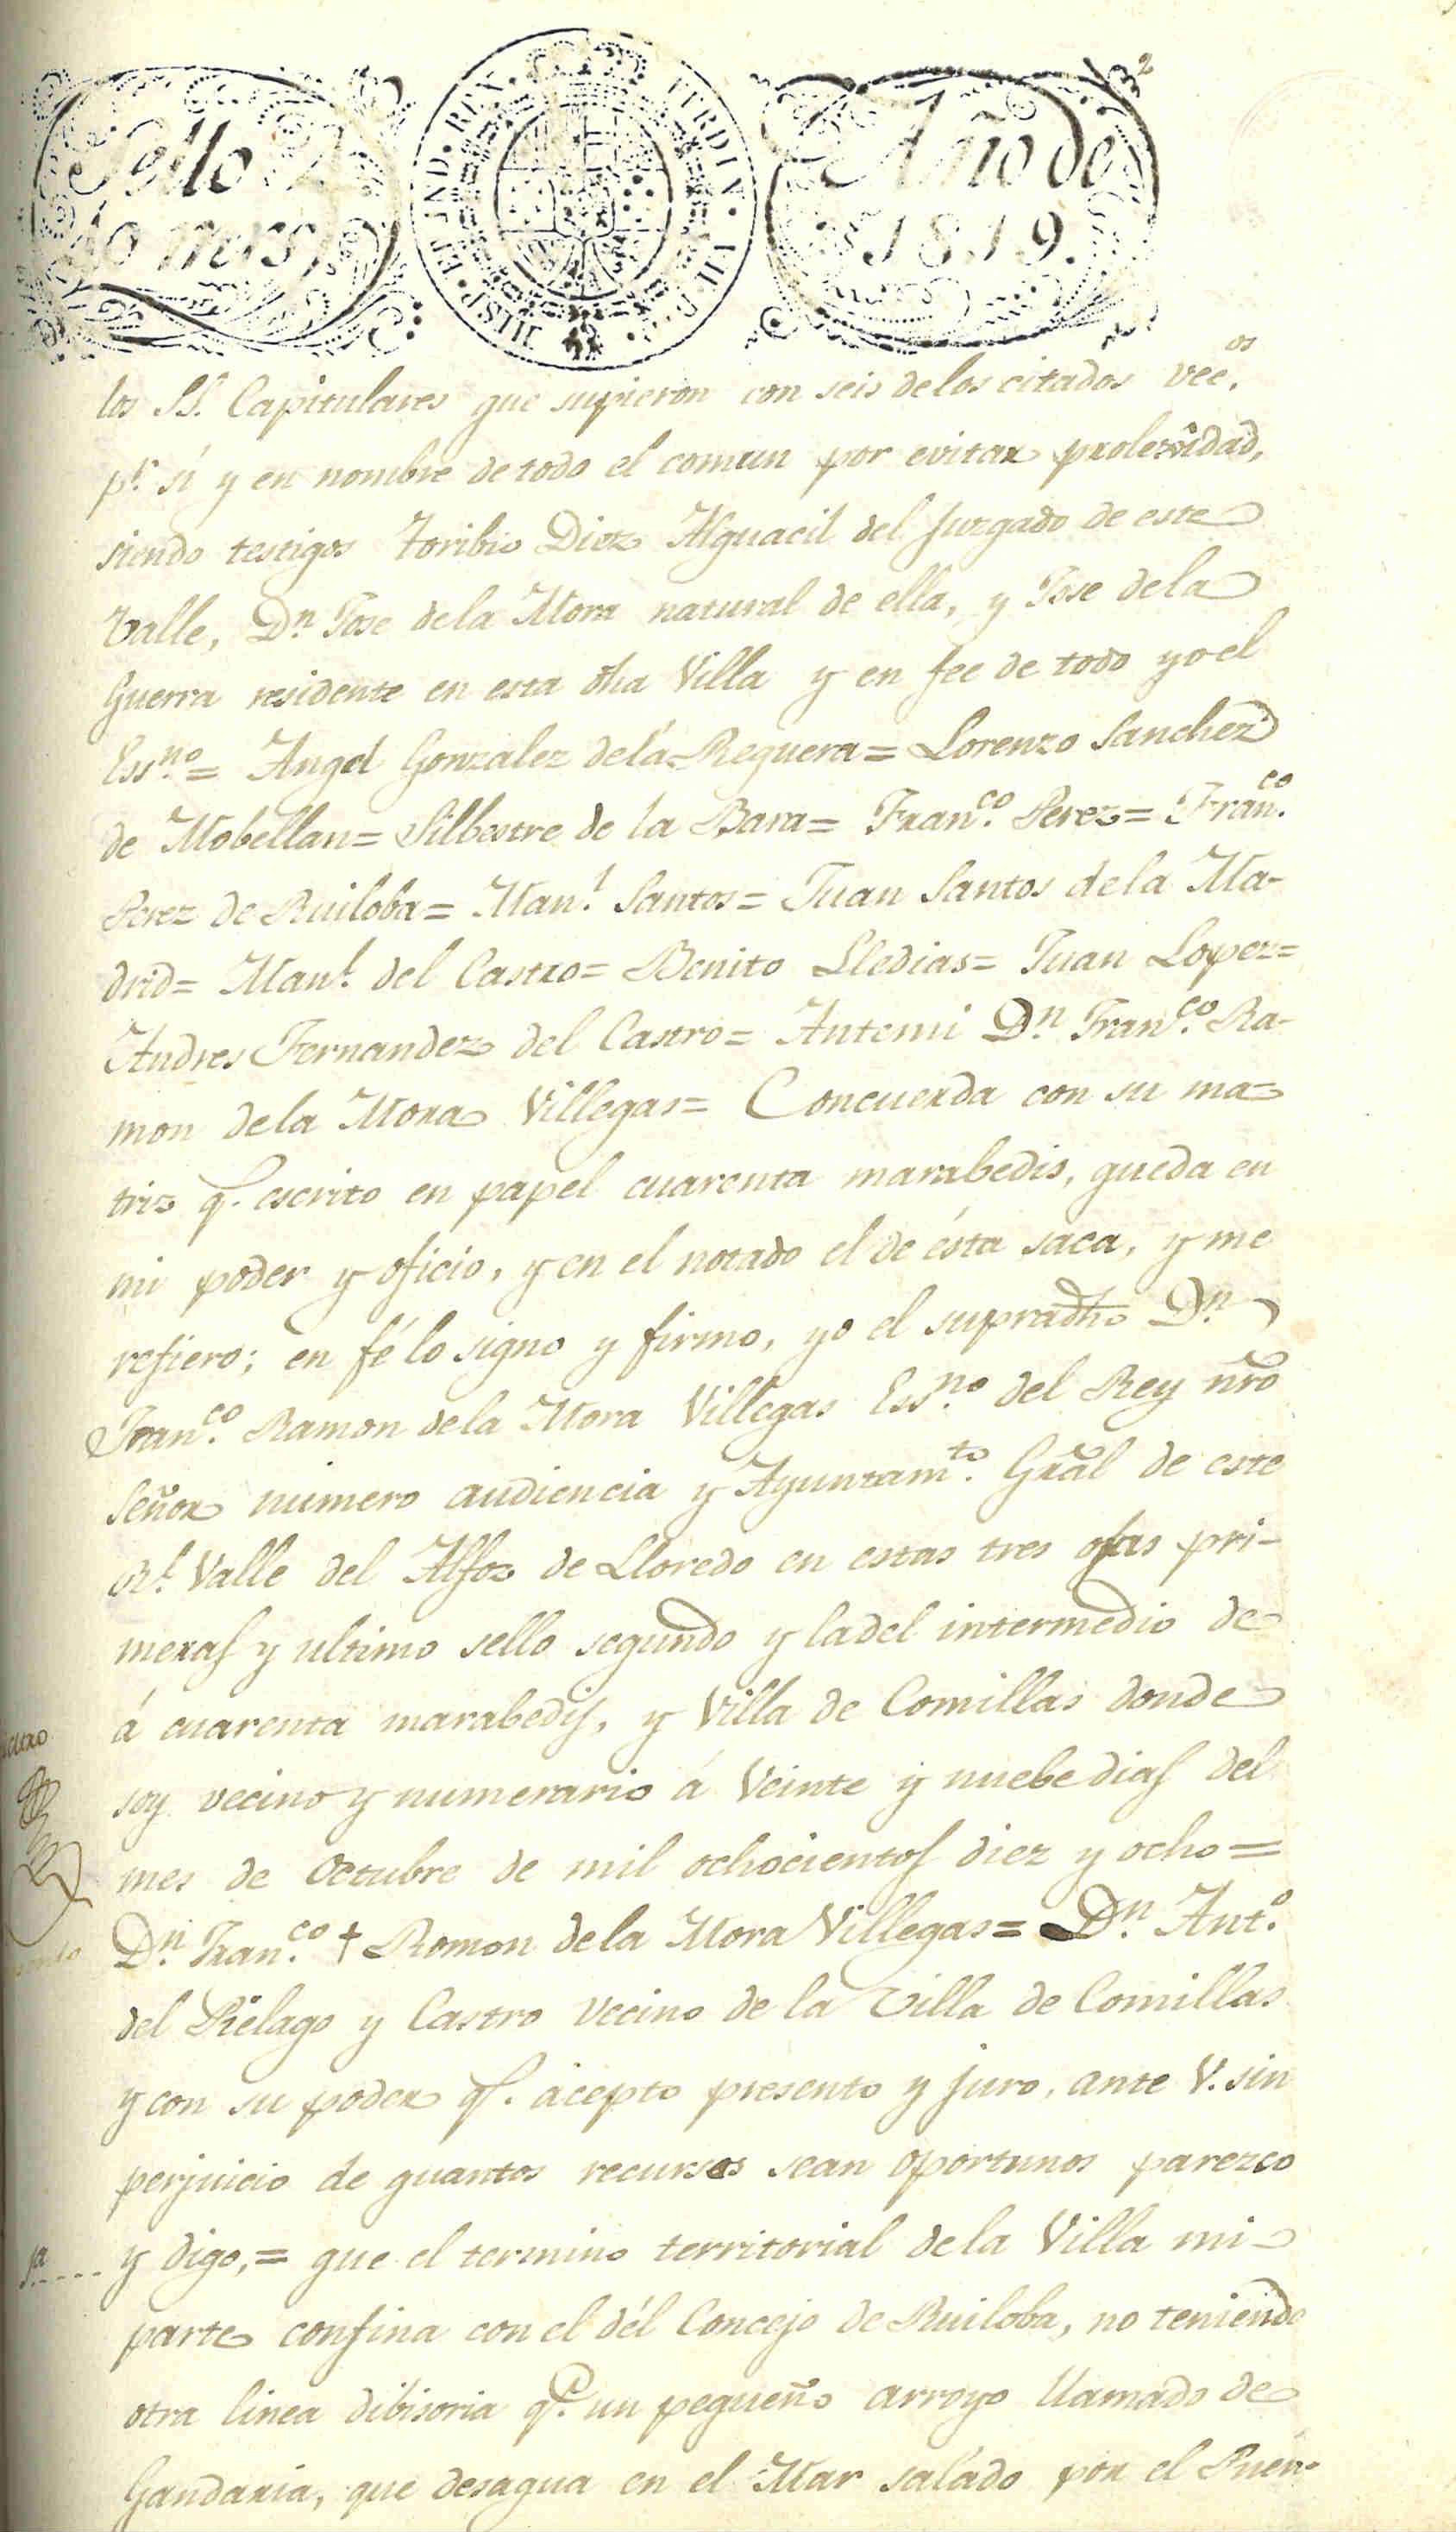 2
Sello 4º
40 mrs.
HISP. ET IND. REX.
FERDIN. VII. D. G.
Año de
1819.
los SS. Capitulares que supieron con seis delos citados vec.os
pr. sí y en nombre de todo el comun por evitar prolexidad,
siendo testigos Toribio Diez Alguacil del Juzgado de este
Valle, Dn. Jose dela Mora natural de ella, y Jose dela
Guerra residente en esta dha Villa y en fee de todo yo el
Essno.= Angel Gonzalez dela Reguera= Lorenzo Sanchez
de Mobellan= Silbestre de la Bara= Franco. Perez= Franco.
Perez de Ruiloba= Manl. Santos= Juan Santos dela Ma-
drid= Manl. del Castro= Benito Lledias= Juan Lopez=
Andres Fernandez del Castro= Antemi Dn. Franco. Ra-
mon dela Mora Villegas= Concuerda con su ma=
triz q. escrito en papel cuarenta marabedis, queda en
mi poder y oficio, y en el notado el de ésta saca, y me
refiero; en fé lo signo y firmo, yo el supradho Dn.
Franco. Ramon dela Mora Villegas Essno. del Rey nro
Señor numero audiencia y Ayuntamto. Gral de este
Rl. Valle del Alfoz de Lloredo en estas tres ojas pri-
meras y ultimo sello segundo y ladel intermedio de
á cuarenta marabedis, y Villa de Comillas donde
soy vecino y numerario á Veinte y nuebe dias del
mes de Octubre de mil ochocientos diez y ocho=
Dn. Franco. + Romon dela Mora Villegas= Dn. Anto.
del Piélago y Castro Vecino de la Villa de Comillas
y con su poder q. acepto presento y juro, ante V. sin
perjuicio de quantos recursos sean oportunos parezco
y digo,= que el termino territorial dela Villa mi
parte confina con el dél Concejo de Ruiloba, no teniendo
otra linea dibisoria q.e un pequeño arroyo llamado de
Gandaria, que desagua en el Mar saládo por el Puen-